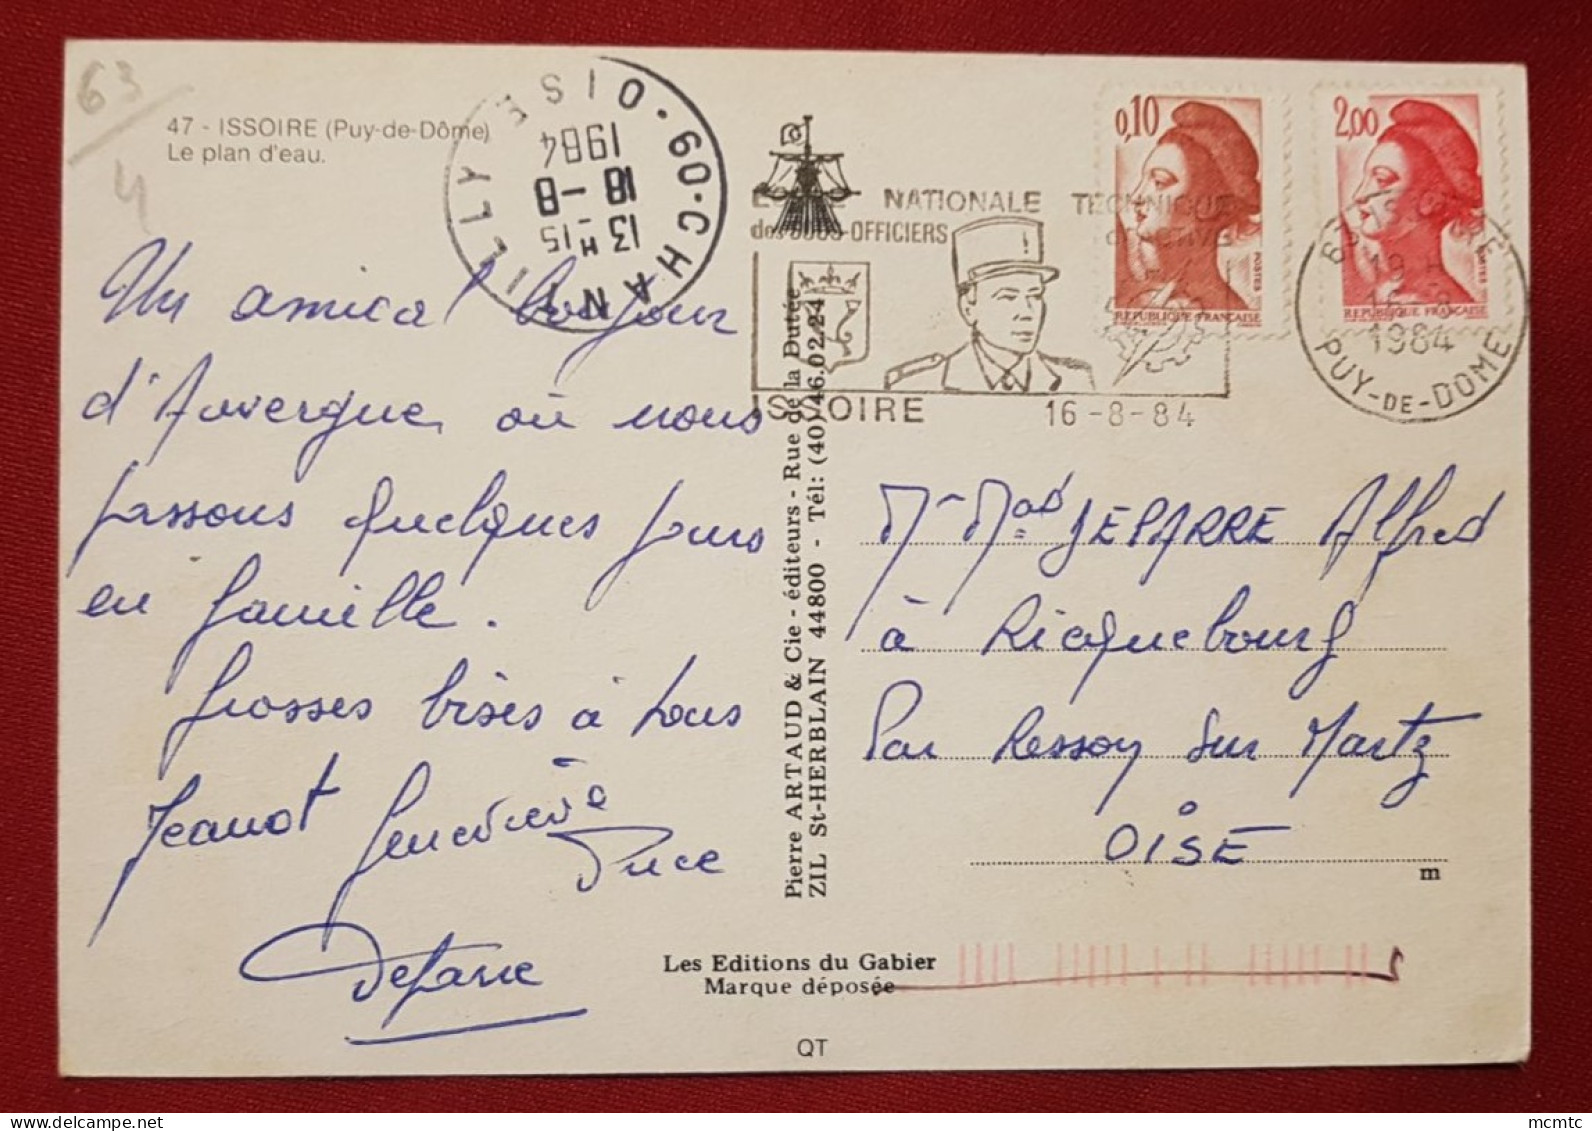 63
4
47 - ISSOIRE (Puy-de-Dôme)
Le plan d'eau.
60-CHANTILLY OISE
13H15
18-8
1984
NATIONALE TECHNIQUE
des SOUS-OFFICIERS
ISSOIRE 16-8-84
0,10
POSTES
REPUBLIQUE FRANÇAISE
2,00
POSTES
REPUBLIQUE FRANÇAISE
63
1984
PUY-DE-DOME
Un amical bonjour
d'Auvergne, où nous
passons quelques jours
en famille.
Grosses bises à tous
Jeanot Geneviève
Puce
Deparre
Pierre ARTAUD & Cie - éditeurs - Rue de la Dutée
ZIL St-HERBLAIN 44800 - Tél: (40) 46.02.24
Mr Mad DEPARRE Alfred
à Ricquebourg
Par Ressoy Sur Martz
OISE
m
Les Editions du Gabier
Marque déposée
QT
mcmtc